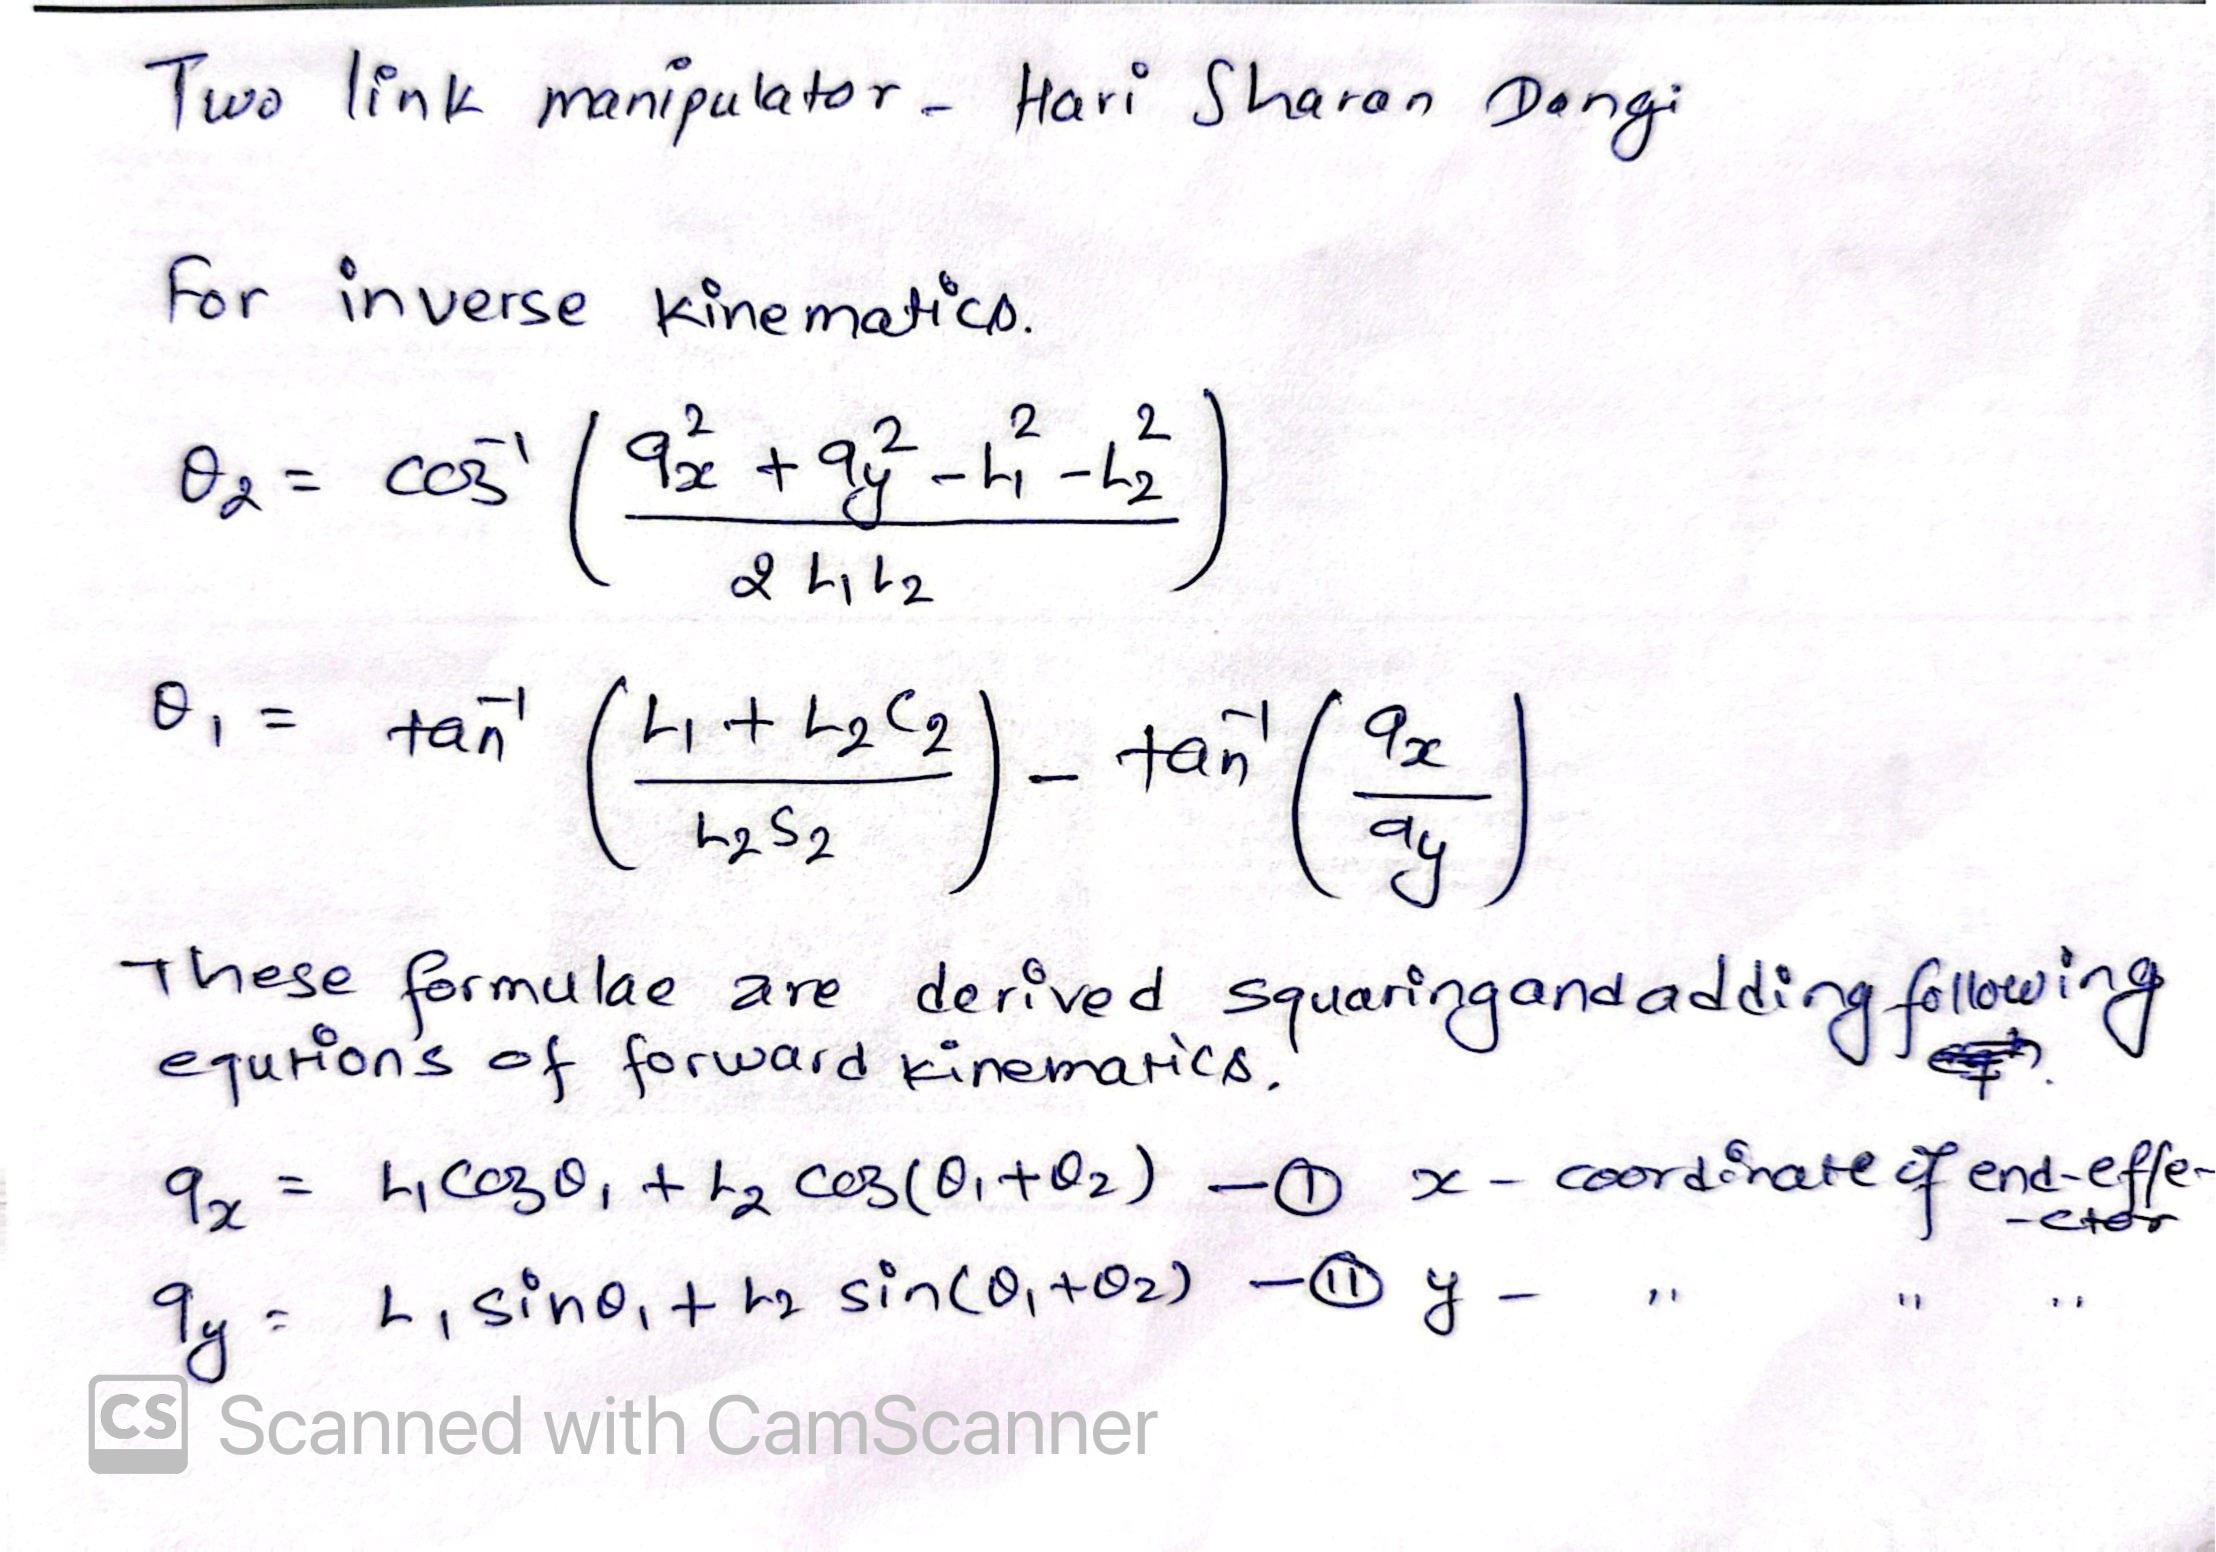 Two link manipulator - Hari Sharan Dangi
For inverse kinematics.
θ₂ = cos⁻¹ ( (qx² + qy² - L₁² - L₂²) / (2 L₁ L₂) )
θ₁ = tan⁻¹ ( (L₁ + L₂ C₂) / (L₂ S₂) ) - tan⁻¹ ( qx / qy )
These formulae are derived squaring and adding following
equtions of forward kinematics.
qx = L₁ cosθ₁ + L₂ cos(θ₁+θ₂) - Ⓘ x - coordinate of end-effe-
-ctor
qy = L₁ sinθ₁ + L₂ sin(θ₁+θ₂) - (II) y - " " "
CS Scanned with CamScanner